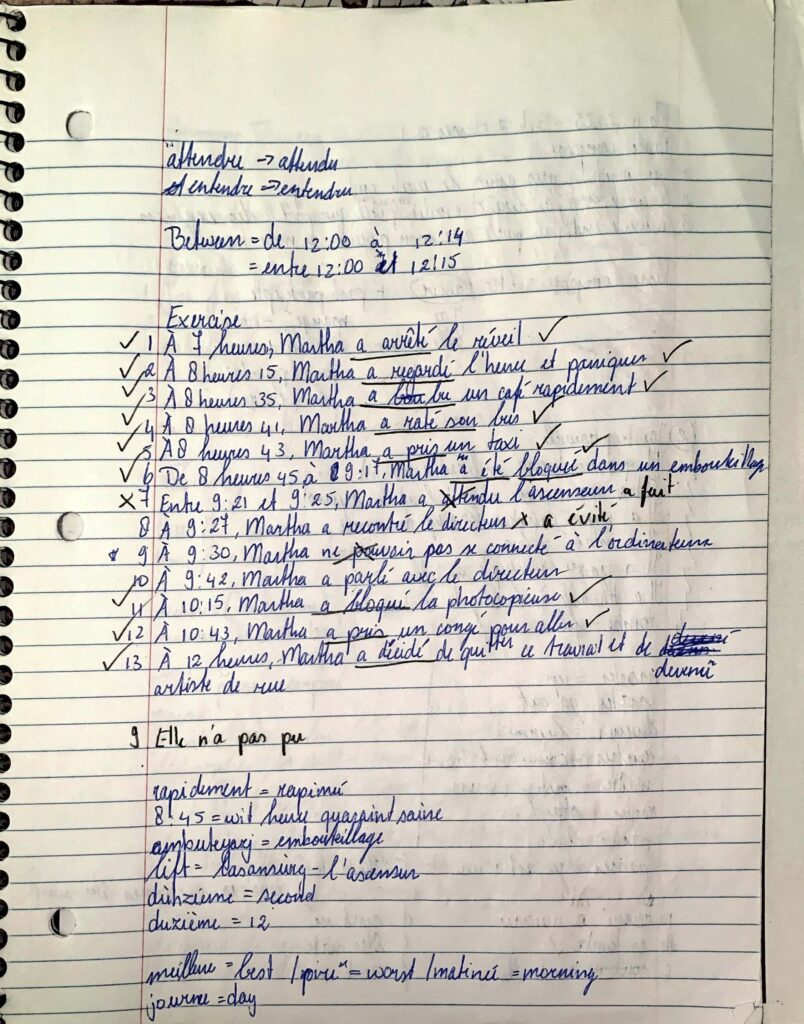 attendre → attendu
entendre → entendu
Between = de 12:00 à 12:14
= entre 12:00 et 12:15
Exercise
✓ 1 À 7 heures, Martha a arrêté le réveil ✓
✓ 2 À 8 heures 15, Martha a regardé l'heure et paniquer ✓
✓ 3 À 8 heures 35, Martha a bu un café rapidement ✓
✓ 4 À 8 heures 41, Martha a raté son bus ✓
✓ 5 À 8 heures 43, Martha a pris un taxi ✓
✓ 6 De 8 heures 45 à 9:17, Martha a été bloqué dans un embouteillage ✓
x 7 Entre 9:21 et 9:25, Martha a attendu l'ascenseur a fuit
8 À 9:27, Martha a recontré le directeur x a évité
9 À 9:30, Martha ne pouvoir pas se connecté à l'ordinateur
10 À 9:42, Martha a parlé avec le directeur
✓ 11 À 10:15, Martha a bloqué la photocopieuse ✓
✓ 12 À 10:43, Martha a pris un congé pour aller ✓
✓ 13 À 12 heures, Martha a décidé de quitter ce travail et de
devenir
artiste de rue
9 Elle n'a pas pu
rapidement = rapimú
8:45 = wit heure quaraint saine
ambuteyarj = embouteillage
lift = - l'ascensur
= second
duzième = 12
meilleure = best / pire = worst / matineé = morning
journe = day